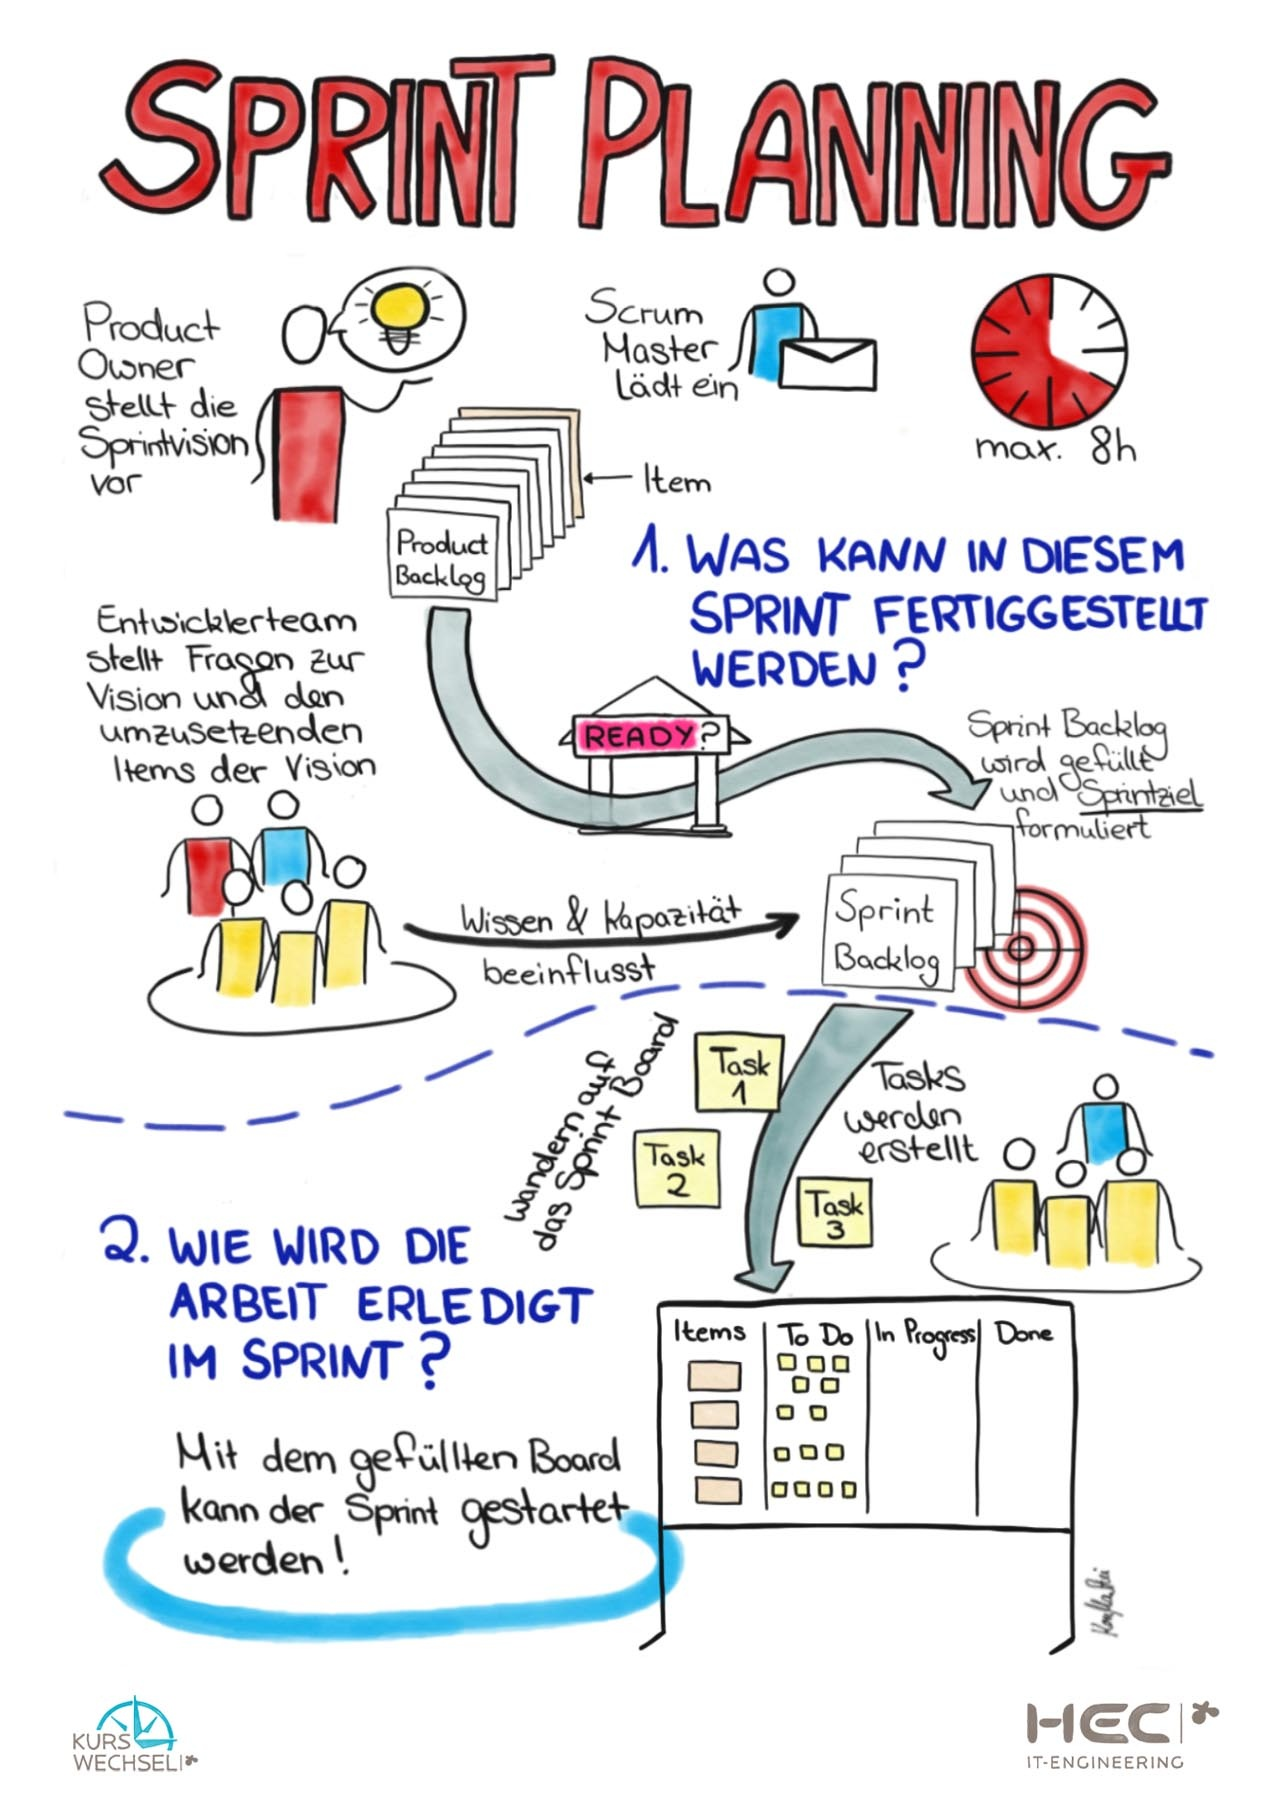 SPRINT PLANNING
Product
Owner
stellt die
Sprintvision
vor
Scrum
Master
lädt ein
max. 8h
Item
Product
Backlog
1. WAS KANN IN DIESEM
SPRINT FERTIGGESTELLT
WERDEN?
Entwicklerteam
stellt Fragen zur
Vision und den
umzusetzenden
Items der Vision
READY?
Sprint Backlog
wird gefüllt
und Sprintziel
formuliert
Wissen & Kapazität
beeinflusst
Sprint
Backlog
wandern auf
das Sprint Board
Task
1
Task
2
Task
3
Tasks
werden
erstellt
2. WIE WIRD DIE
ARBEIT ERLEDIGT
IM SPRINT?
Items
To Do
In Progress
Done
Mit dem gefüllten Board
kann der Sprint gestartet
werden!
KURS
WECHSEL
HEC
IT-ENGINEERING